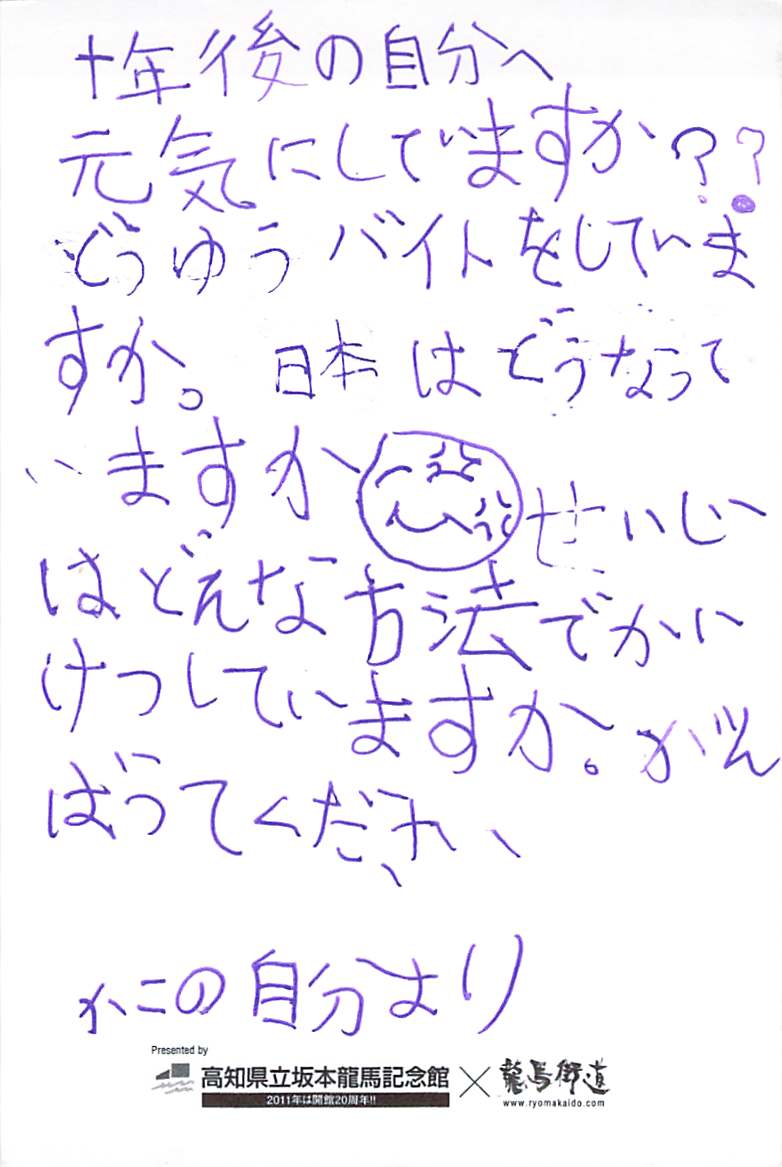 十年後の自分へ
元気にしていますか??
どうゆうバイトをしていま
すか。日本はどうなって
いますか せいじい
はどんな方法でかい
けつしていますか。がん
ばってください、
かこの自分より
Presented by
高知県立坂本龍馬記念館×龍馬街道
2011年は開館20周年!!
www.ryomakaido.com